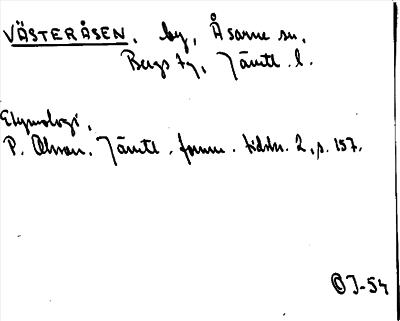 VÄSTERÅSEN, by, Åsarne sn,
Bergs tg, Jämtl. l.
Etymologi,
P. Olsson. Jämtl. fornm. tidskr. 2, s. 157.
OJ-54